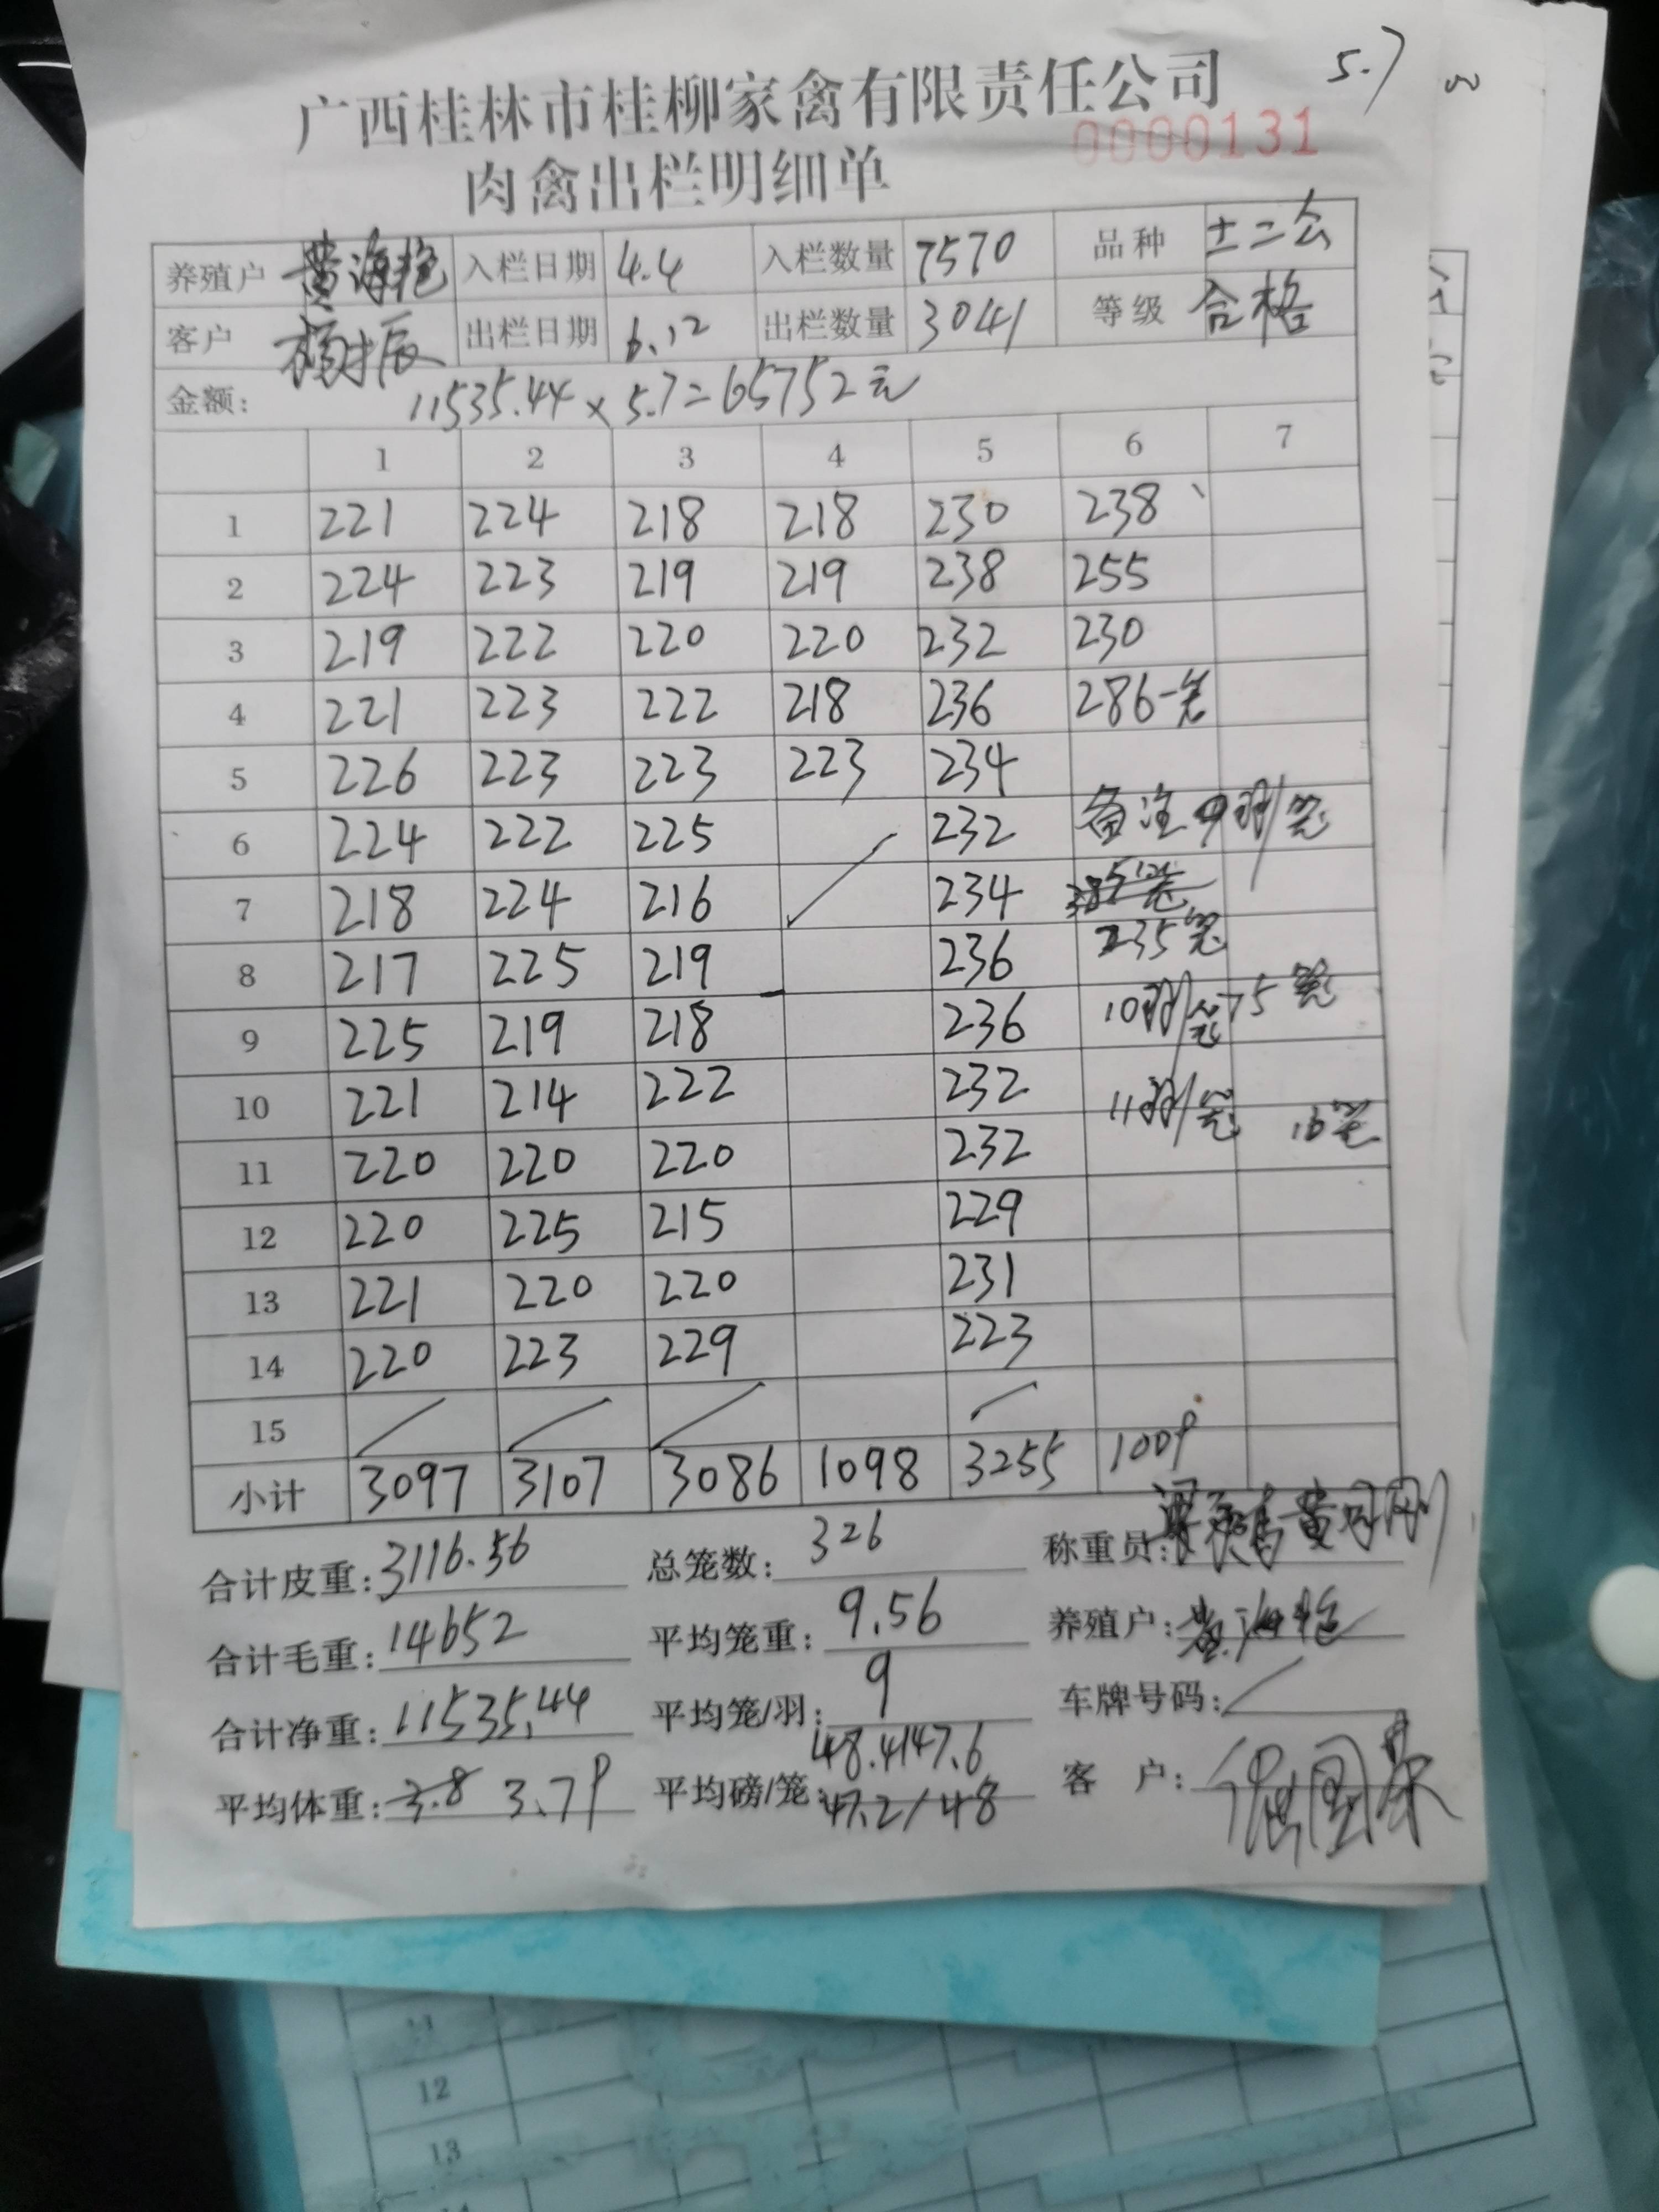 5.7
广西桂林市桂柳家禽有限责任公司
0000131
肉禽出栏明细单
养殖户 黄海艳 入栏日期 4.4 入栏数量 7570 品种 土二公
客户 杨振 出栏日期 6.12 出栏数量 3041 等级 合格
金额: 11535.44×5.7=65752元
1 2 3 4 5 6 7
1 221 224 218 218 230 238
2 224 223 219 219 238 255
3 219 222 220 220 232 230
4 221 223 222 218 236 286-笼
5 226 223 223 223 234
6 224 222 225 232 备注 9羽/笼
7 218 224 216 234
8 217 225 219 236 235笼
9 225 219 218 236 10羽/笼 75笼
10 221 214 222 232 11羽/笼 16笼
11 220 220 220 232
12 220 225 215 229
13 221 220 220 231
14 220 223 229 223
15
小计 3097 3107 3086 1098 3255 1009
合计皮重: 3116.56 总笼数: 326 称重员:
合计毛重: 14652 平均笼重: 9.56 养殖户: 黄海艳
合计净重: 11535.44 平均笼/羽: 9 车牌号码:
48.4/47.6
平均体重: 3.8 3.79 平均磅/笼: 47.2/48 客 户:
11
12
13
14